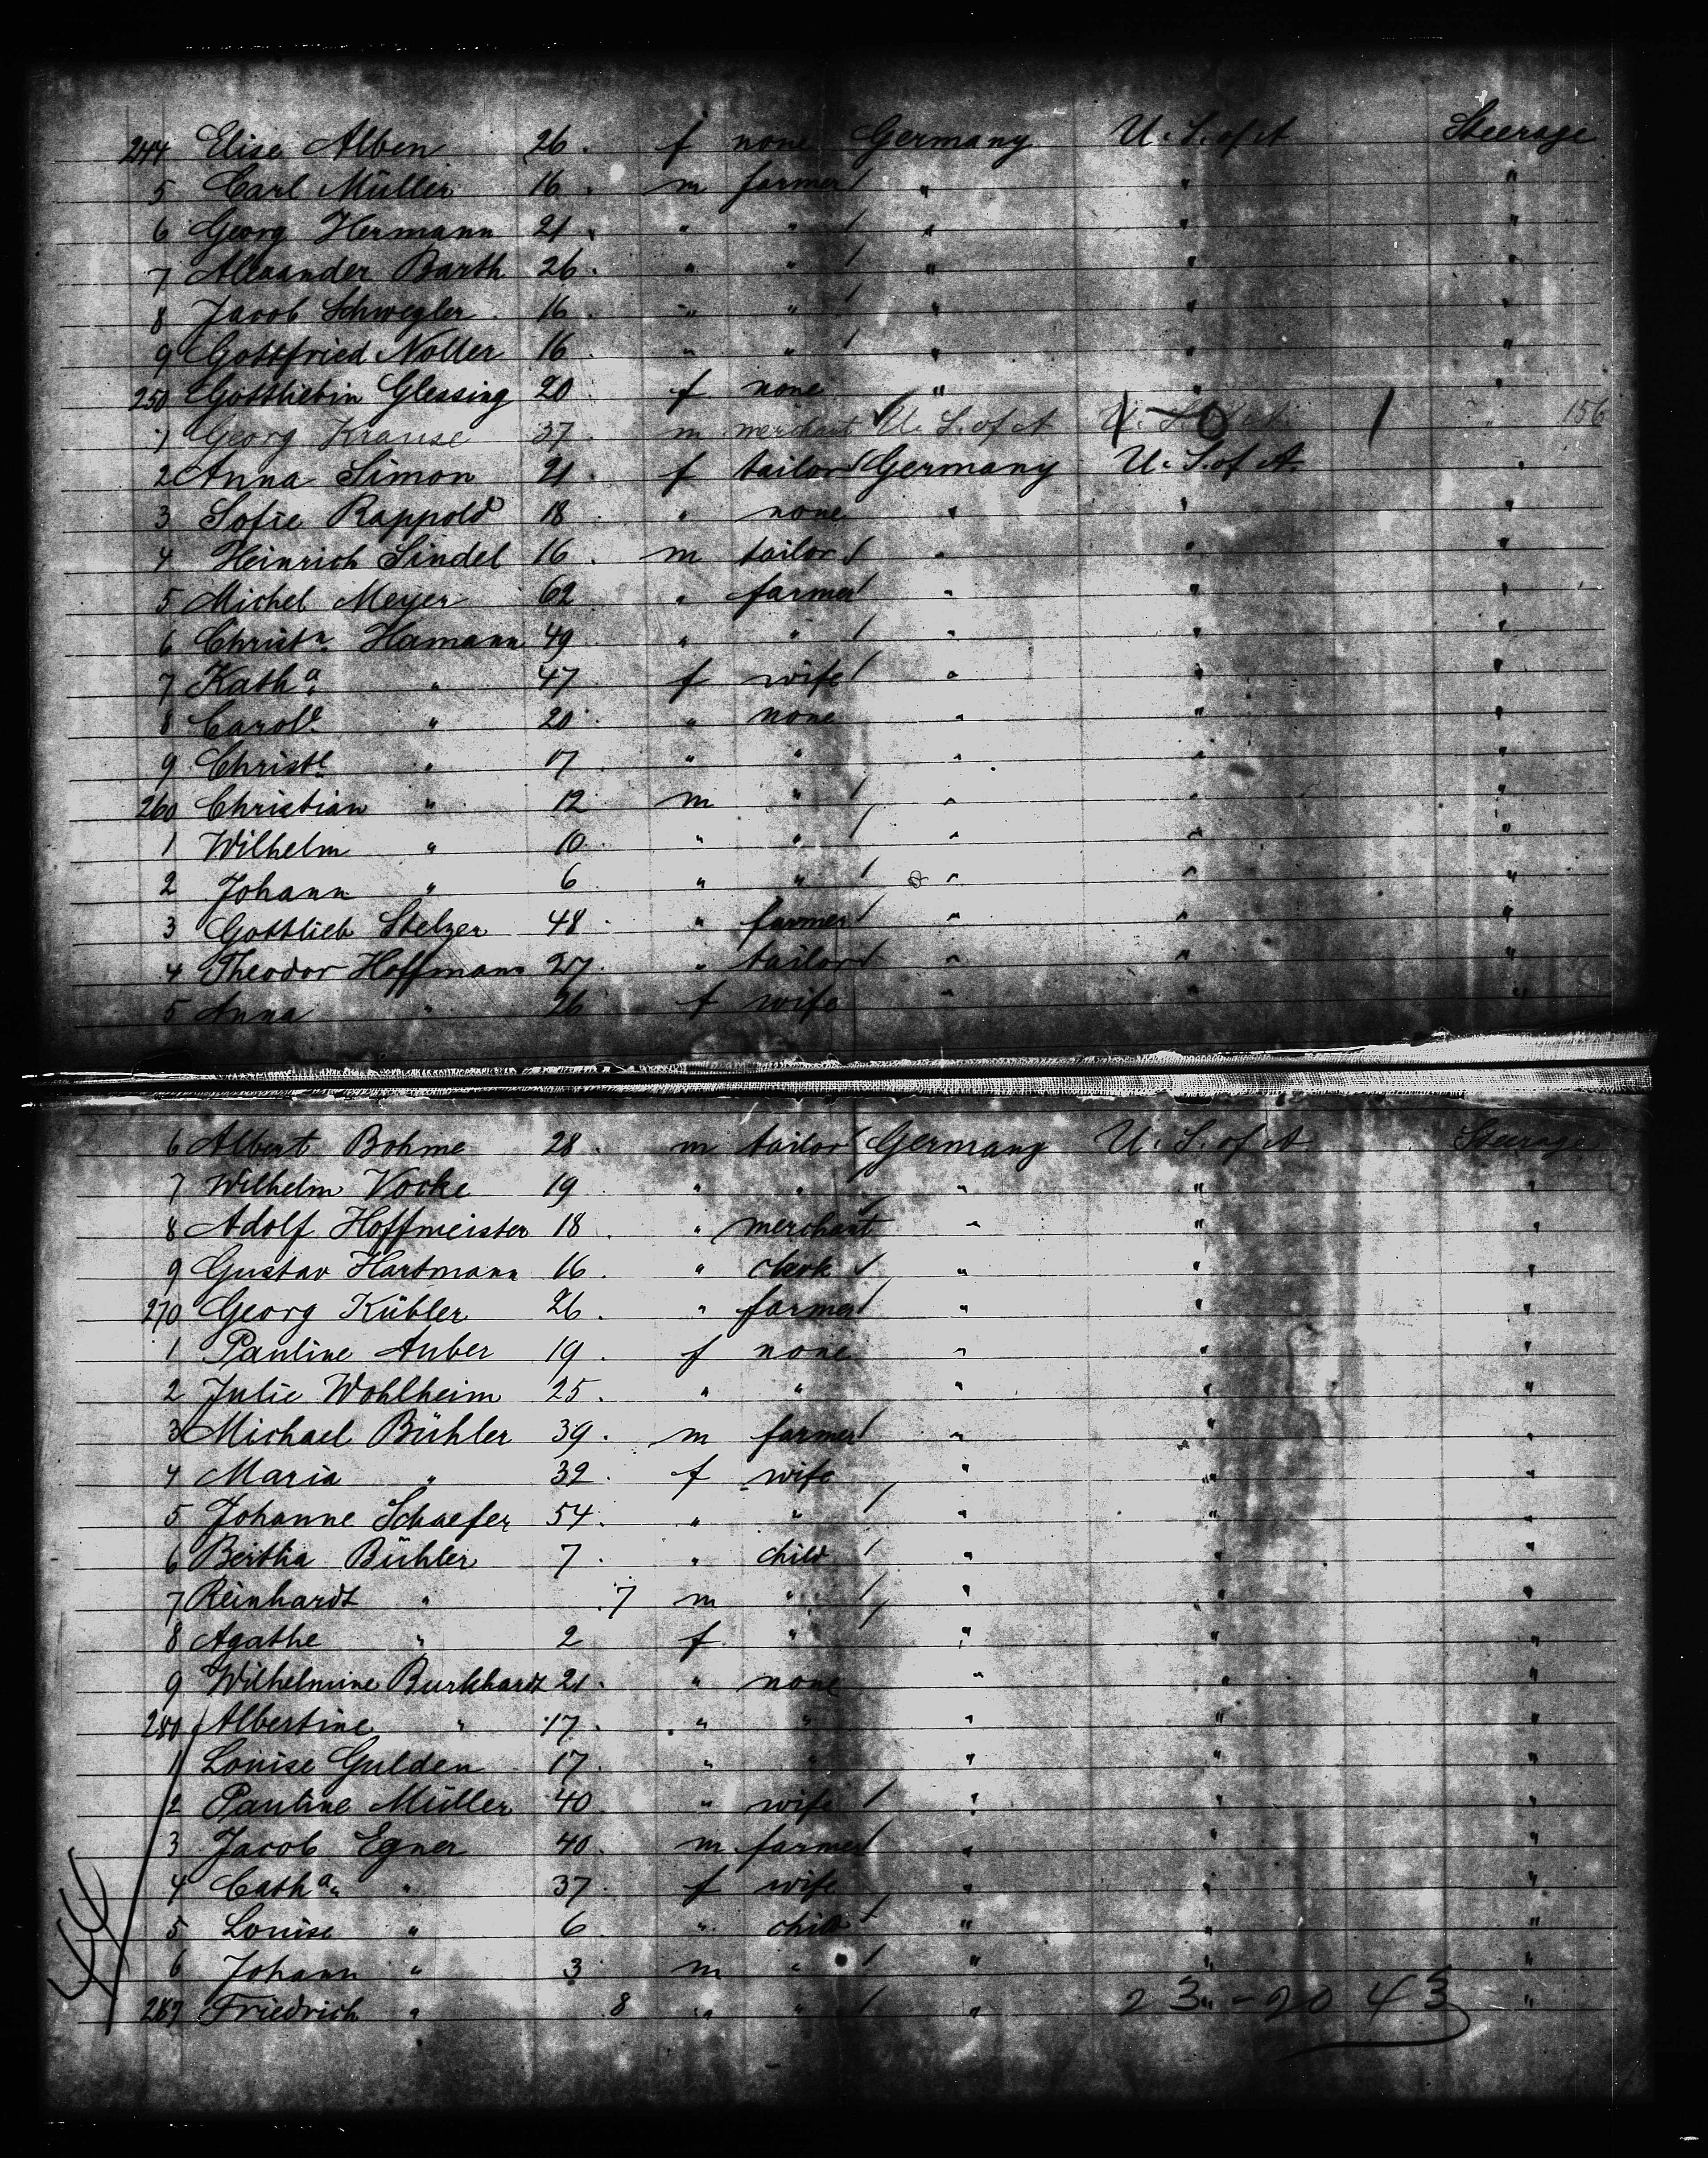 244 Elise Alben 26. f none Germany U. S. of A Steerage
5 Carl Müller 16. m farmer " " "
6 Georg Hermann 21. " " " " "
7 Alexander Barth 26. " " " " "
8 Jacob Schwegler 16. " " " " "
9 Gottfried Noller 16. " " " " "
250 Gottliebin Glessing 20 f none " " "
1 Georg Krause 37. m merchant U. S. of A U. S. of A. " 156
2 Anna Simon 21. f tailor Germany U. S. of A. "
3 Sofie Rappold 18. " none " " "
4 Heinrich Sindel 16. m tailor " " "
5 Michel Meyer 62 " farmer " " "
6 Christn. Hamann 49. " " " " "
7 Katha. " 47. f wife " " "
8 Carole. " 20. " none " " "
9 Christe " 17. " " " " "
260 Christian " 12. m " " " "
1 Wilhelm " 10. " " " " "
2 Johann " 6 " " " " "
3 Gottlieb Stelzer 48. " farmer " " "
4 Theodor Hoffmann 27. " tailor " " "
5 Anna " 26 f wife " " "
6 Albert Bohme 28. m tailor Germany U. S. of A. Steerage
7 Wilhelm Vocke 19. " " " " "
8 Adolf Hoffmeister 18. " merchant " " "
9 Gustav Hartmann 16. " clerk " " "
270 Georg Kübler 26. " farmer " " "
1 Pauline Auber 19. f none " " "
2 Julie Wohlheim 25. " " " " "
3 Michael Bühler 39. m farmer " " "
4 Maria " 32. f wife " " "
5 Johanne Schaefer 54. " " " " "
6 Bertha Bühler 7. " child " " "
7 Reinhardt " .7 m " " " "
8 Agathe " 2 f " " " "
9 Wilhelmine Burkhardt 21. " none " " "
280 Albertine " 17. " " " " "
1 Louise Gulden 17. " " " " "
2 Pauline Müller 40 " wife " " "
3 Jacob Egner 40. m farmer " " "
4 Catha. " 37. f wife " " "
5 Louise " 6 " child " " "
6 Johann " 3 m " " " "
287 Friedrich " .8 " " " " "
23 - 20 43